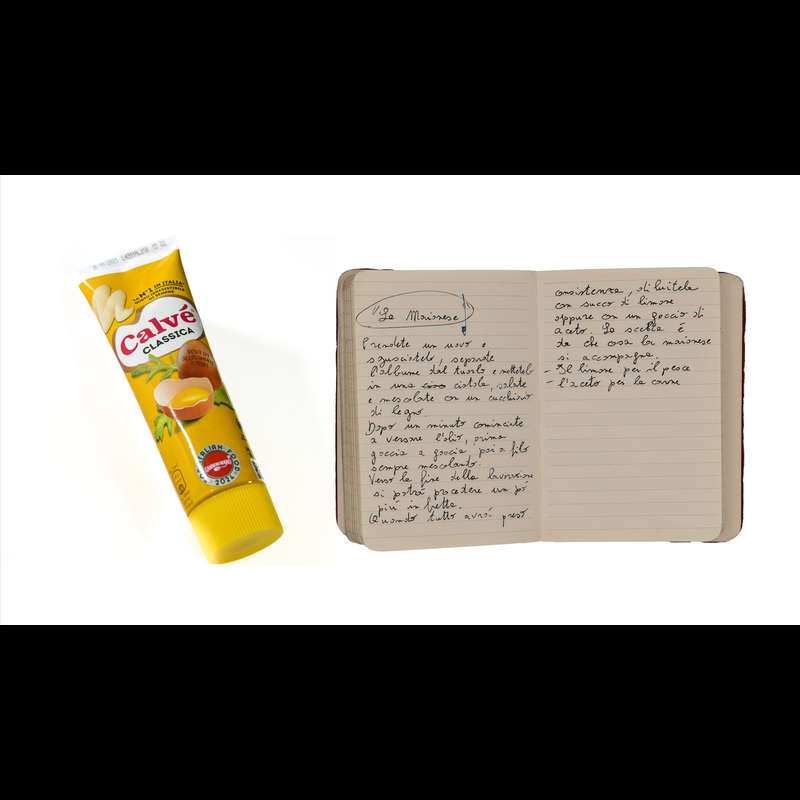 N°1 IN ITALIA
Calvé
CLASSICA
ITALIAN FOOD
2021
"La Maionese"
Prendete un uovo e
sgusciatelo, separate
l'albume dal tuorlo e mettetelo
in una ciotola, salate
e mescolate con un cucchiaio
di legno
Dopo un minuto cominciate
a versare l'olio, prima
goccia a goccia, poi a filo
sempre mescolando.
Verso la fine della lavorazione
si potrà procedere un pò
più in fretta.
Quando tutto avrà preso
consistenza, diluitela
con succo di limone
oppure con un goccio di
aceto. La scelta è
da che cosa la maionese
si accompagna.
- Il limone per il pesce
- l'aceto per la carne